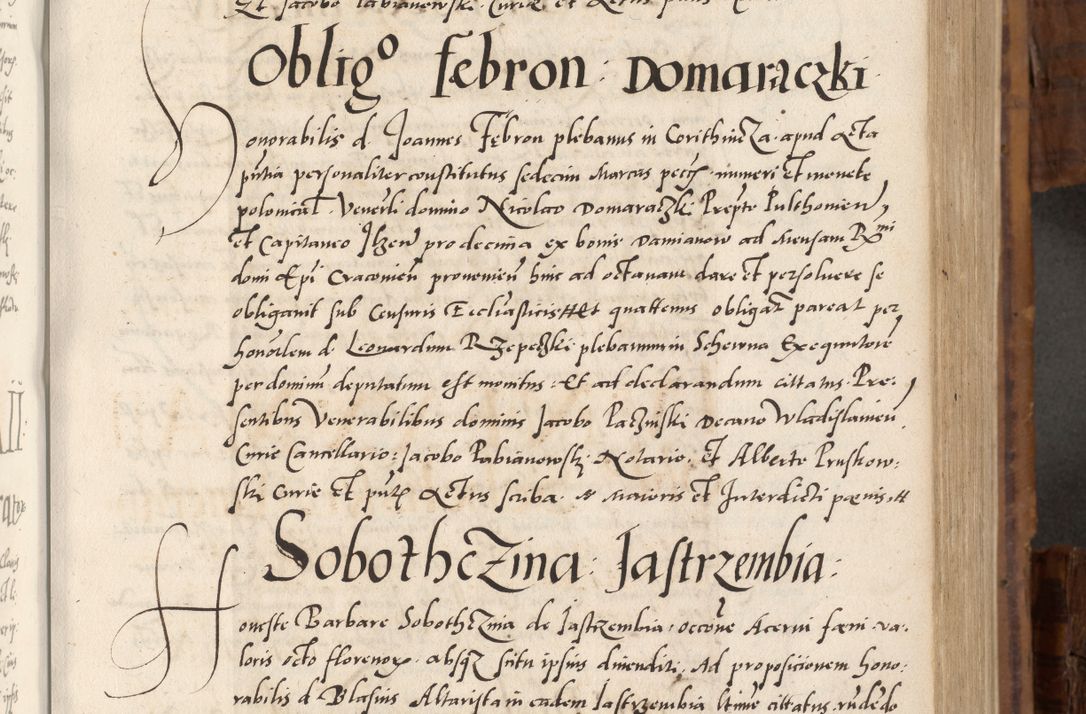 Et Jacobo Pabianowski Curie et Actus
Obligo Febron : Domaraczki
Honorabilis d Joannes Febron plebanus in Corithincza apud Acta
pntia personaliter constitutus sedecim Marcas pecs numeri et monete
polonical Venerli domino Nicolao Domaraczki Prepto Pulthonien
et Capitaneo Ilzen pro decima ex bonis Damianow ad Mensam Rmi
domi Epi Cracovien provenien hinc ad octavam dare et persoluere se
obligauit sub Censuris Eccliasticis Et quattenus obligat pareat per
honorlem d Leonardum Rzepeczki plebanum in Scherna Exequutore
per dominum deputatum est monitus Et ad declarandum cittatus Pre
sentibus Venerabilibus dominis Jacobo Paczinski Decano Wladislauien
Curie Cancellario Jacobo Pabianowski Notario Et Alberto Pruskow
ski Curie et pntium Actus scriba Maioris et Interdicti penis
Sobothczina : Jastrzembia :
Honeste Barbare Sobothczina de Jastrzembia occone Acerui feni va
loris octo florenor absq scitu ipsius diuenditi Ad proposicionem hono
rabilis d Blasius Altarista in eadem Jastrzembia ltime cittatus